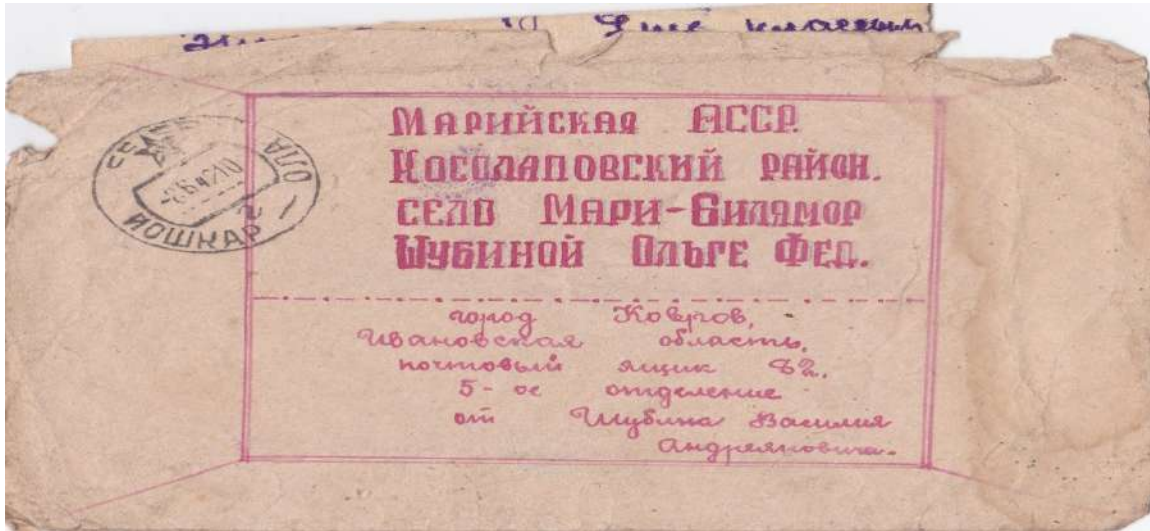 Ещё
Марийская АССР.
Косолаповский район.
село Мари-Билямор
Шубиной Ольге Фед.
город Ковров,
Ивановская область,
почтовый ящик 82.
5-ое отделение
от Шубина Василия
Андреяновича.
ЙОШКАР
ОЛА